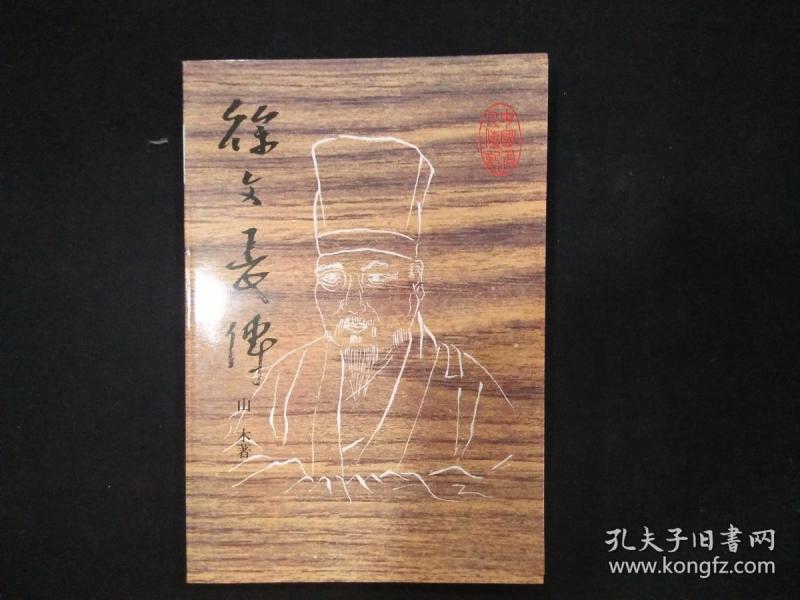 徐文長傳
山木著
孔夫子旧書网
www.kongfz.com